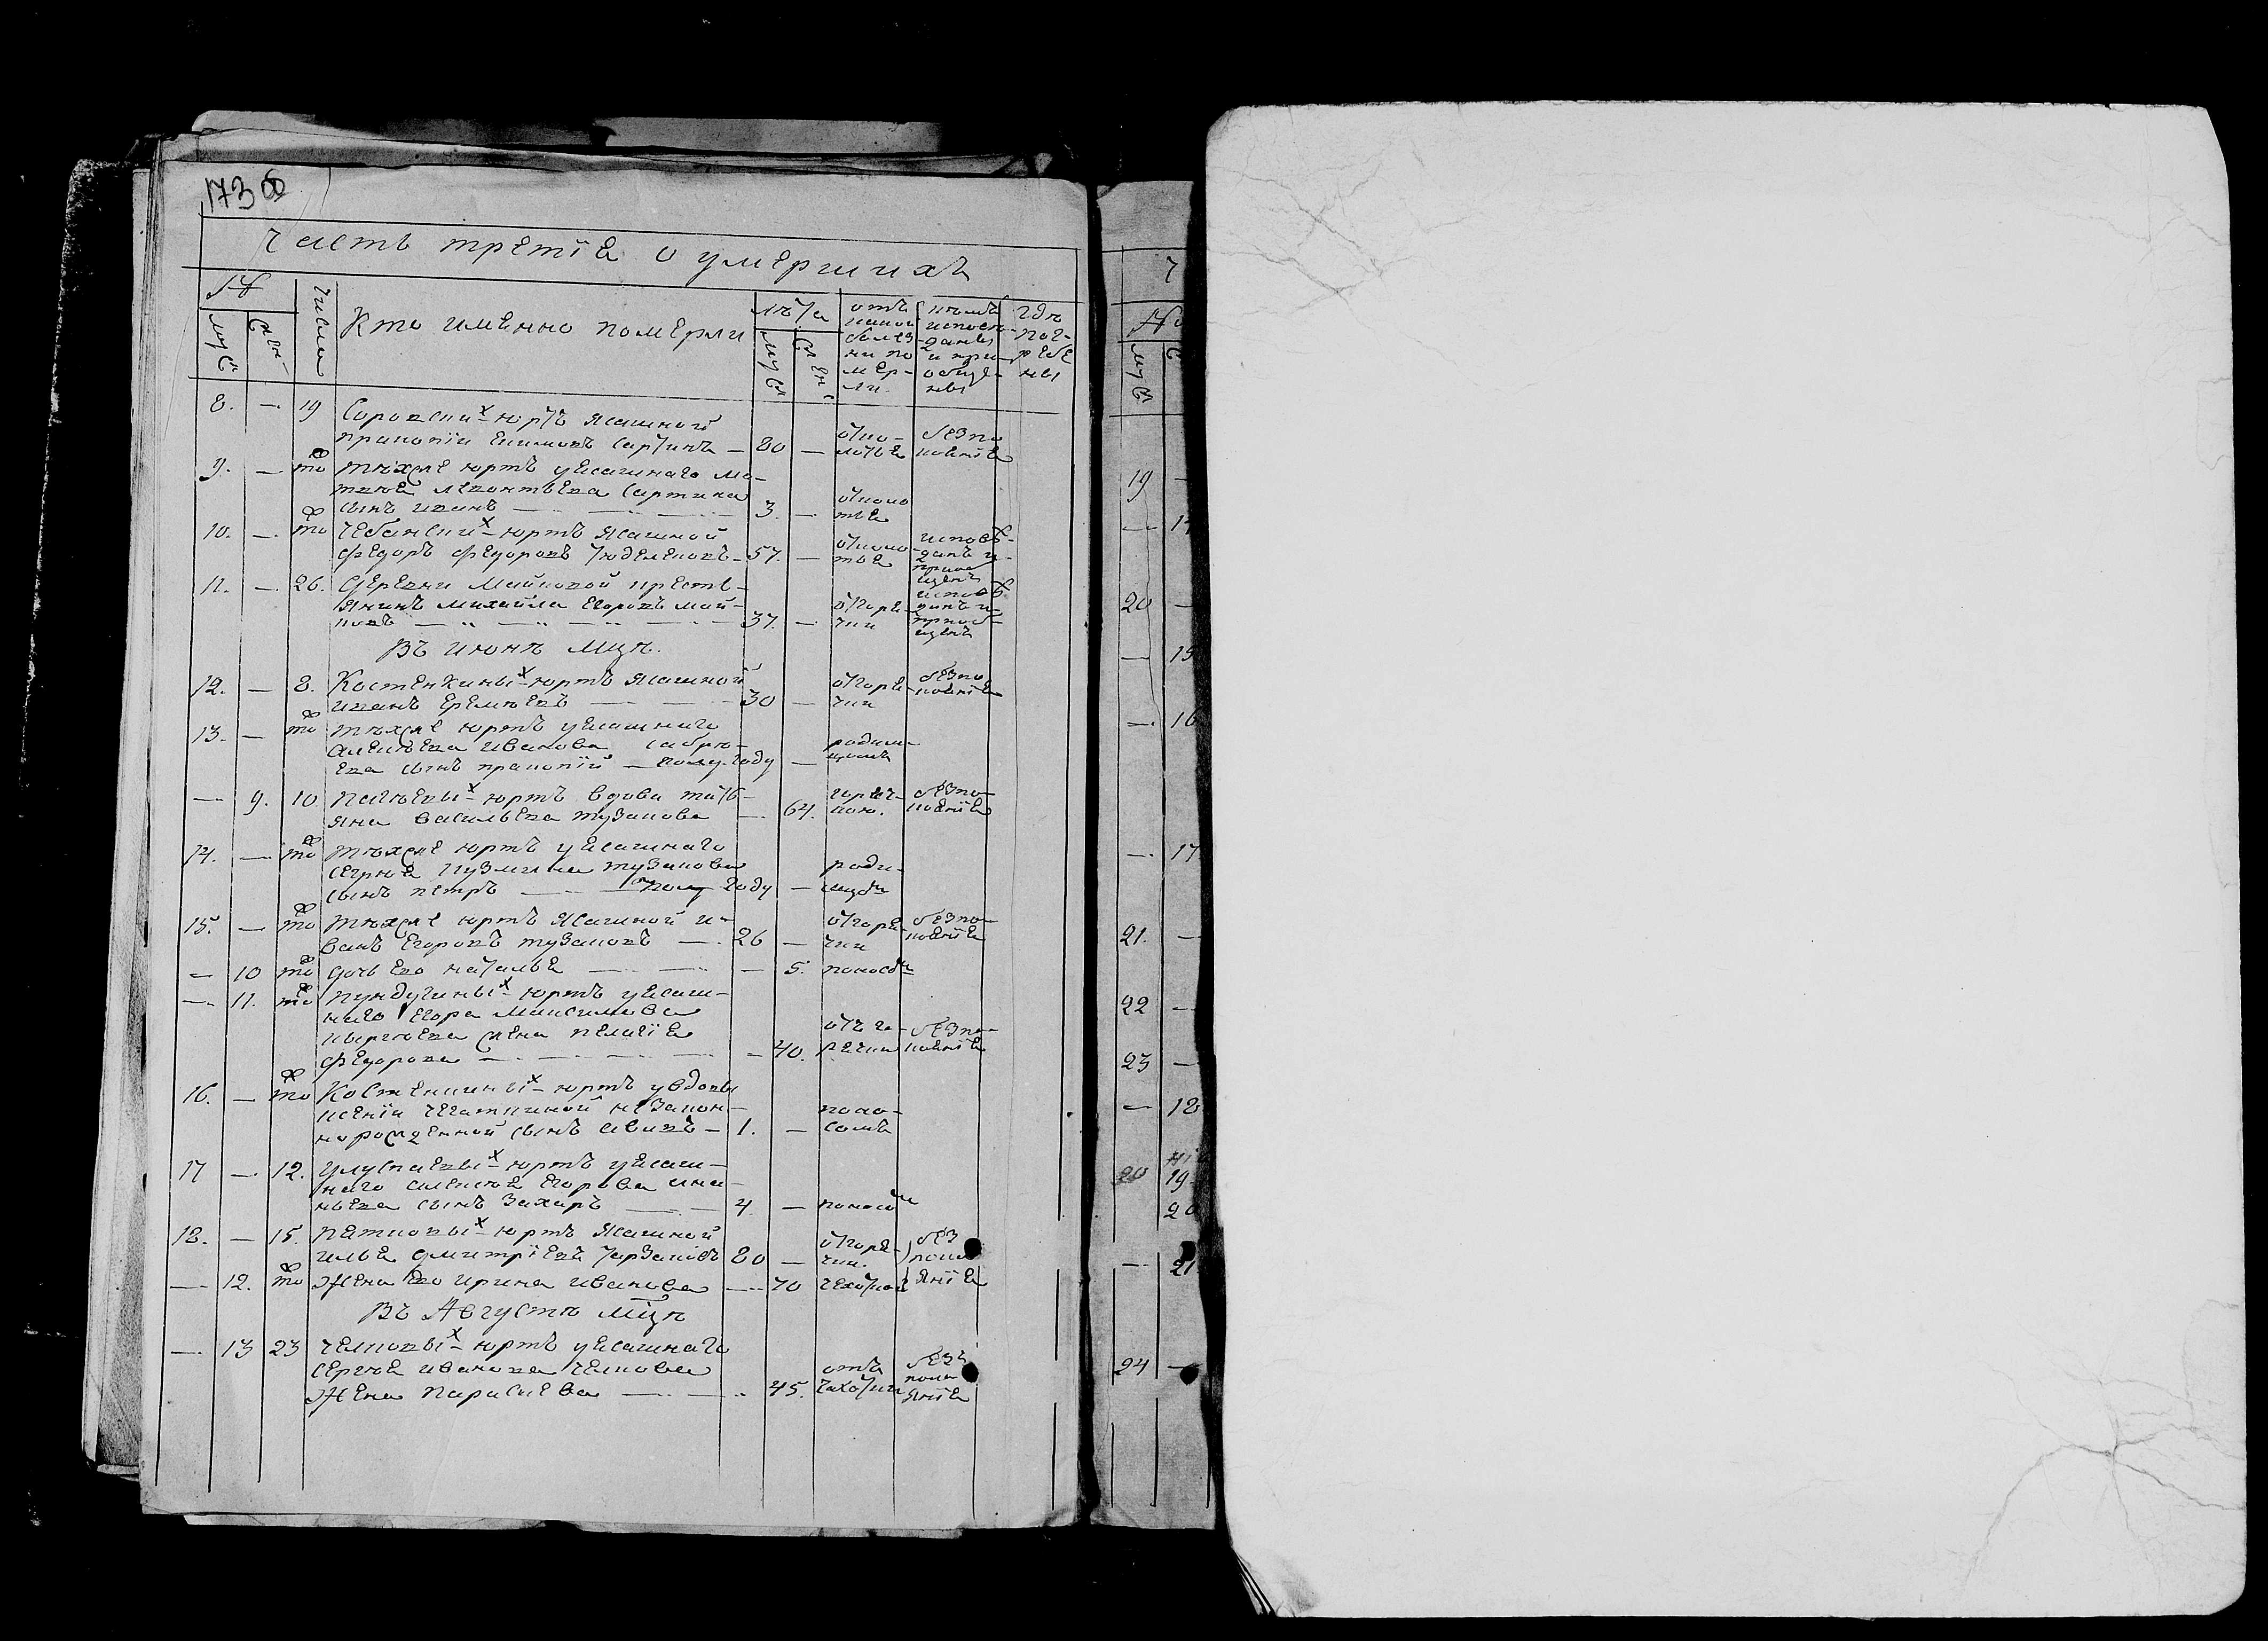 173 об
Часть третія о умершихъ
№
муж
жен
числа
Кто именно померли
лѣта
муж
жен
отъ какой болезни померли
кѣмъ исповѣданы и приобщены
гдѣ погребены
8. — 19 Соровски х юртъ Ясашной
Прокопiй Екимовъ Сартинъ — 80 — отколотья безпокаянiя
9. — то тѣхже юртъ у Ясашнаго Ма-
твея Леонтьева Сартина
сынъ Иванъ — 3. — отколотья
10. — то Чебански х юртъ Ясашной
Федоръ Федоровъ Тюделековъ — 57. — отколотья исповѣданъ и приобщенъ
11. — 26. Деревни Майковой кресть-
янинъ Михайла Егоровъ Май-
ковъ — 37. — отгорячки исповѣданъ и приобщенъ
Въ июнѣ мцѣ.
12. — 8. Костенкины х юртъ Ясашной
Иванъ Еремѣевъ — 30 — отгорячки безпокаянiя
13. — то тѣхже юртъ у Ясашнаго
Алексѣева Иванова
сынъ Прокопiй — полу году — родимцомъ
— 9. 10 юртъ вдова Тать-
яна Васильева Тузакова — 64. горячкою. безпокаянiя
14. — то тѣхже юртъ у Ясашнаго
Сергѣя Кузмина Тузакова
сынъ Петръ — полу году — родимцомъ
15. — то тѣхже юртъ Ясашной И-
ванъ Егоровъ Тузаковъ — 26 — отгорячки безпокаянiя
— 10 то дочь Его Наталья — 5. поносомъ
— 11. то Кундугины х юртъ у Ясаш-
наго Егора Максимова
жена Пелагiя
Федорова — 40. отъ горячки безпокаянiя
16. — то Костенкины х юртъ у вдовы
незакон-
норожденной сынъ — 1. — поносомъ
17 — 12. юртъ у Ясаш-
наго Алексѣя Егорова Ана-
ньева сынъ Захаръ — 4 — поносомъ
18. — 15. юртъ Ясашной
Илья Дмитрiевъ Тарзаковъ 80 — отгорячки. без
— 12. то Жена Его Ирина Иванова — 70 чехоткой покаянiя
Въ Августѣ мцѣ
— 13 23 юртъ у Ясашнаго
Сергѣя Иванова
Жена Параскева — 45. отъ чахотки безъ покаянiя
№
муж
19 —
— 14
20 —
— 15
— 16
— 17
21. —
22 —
23 —
— 18
19
20
— 21
24 —